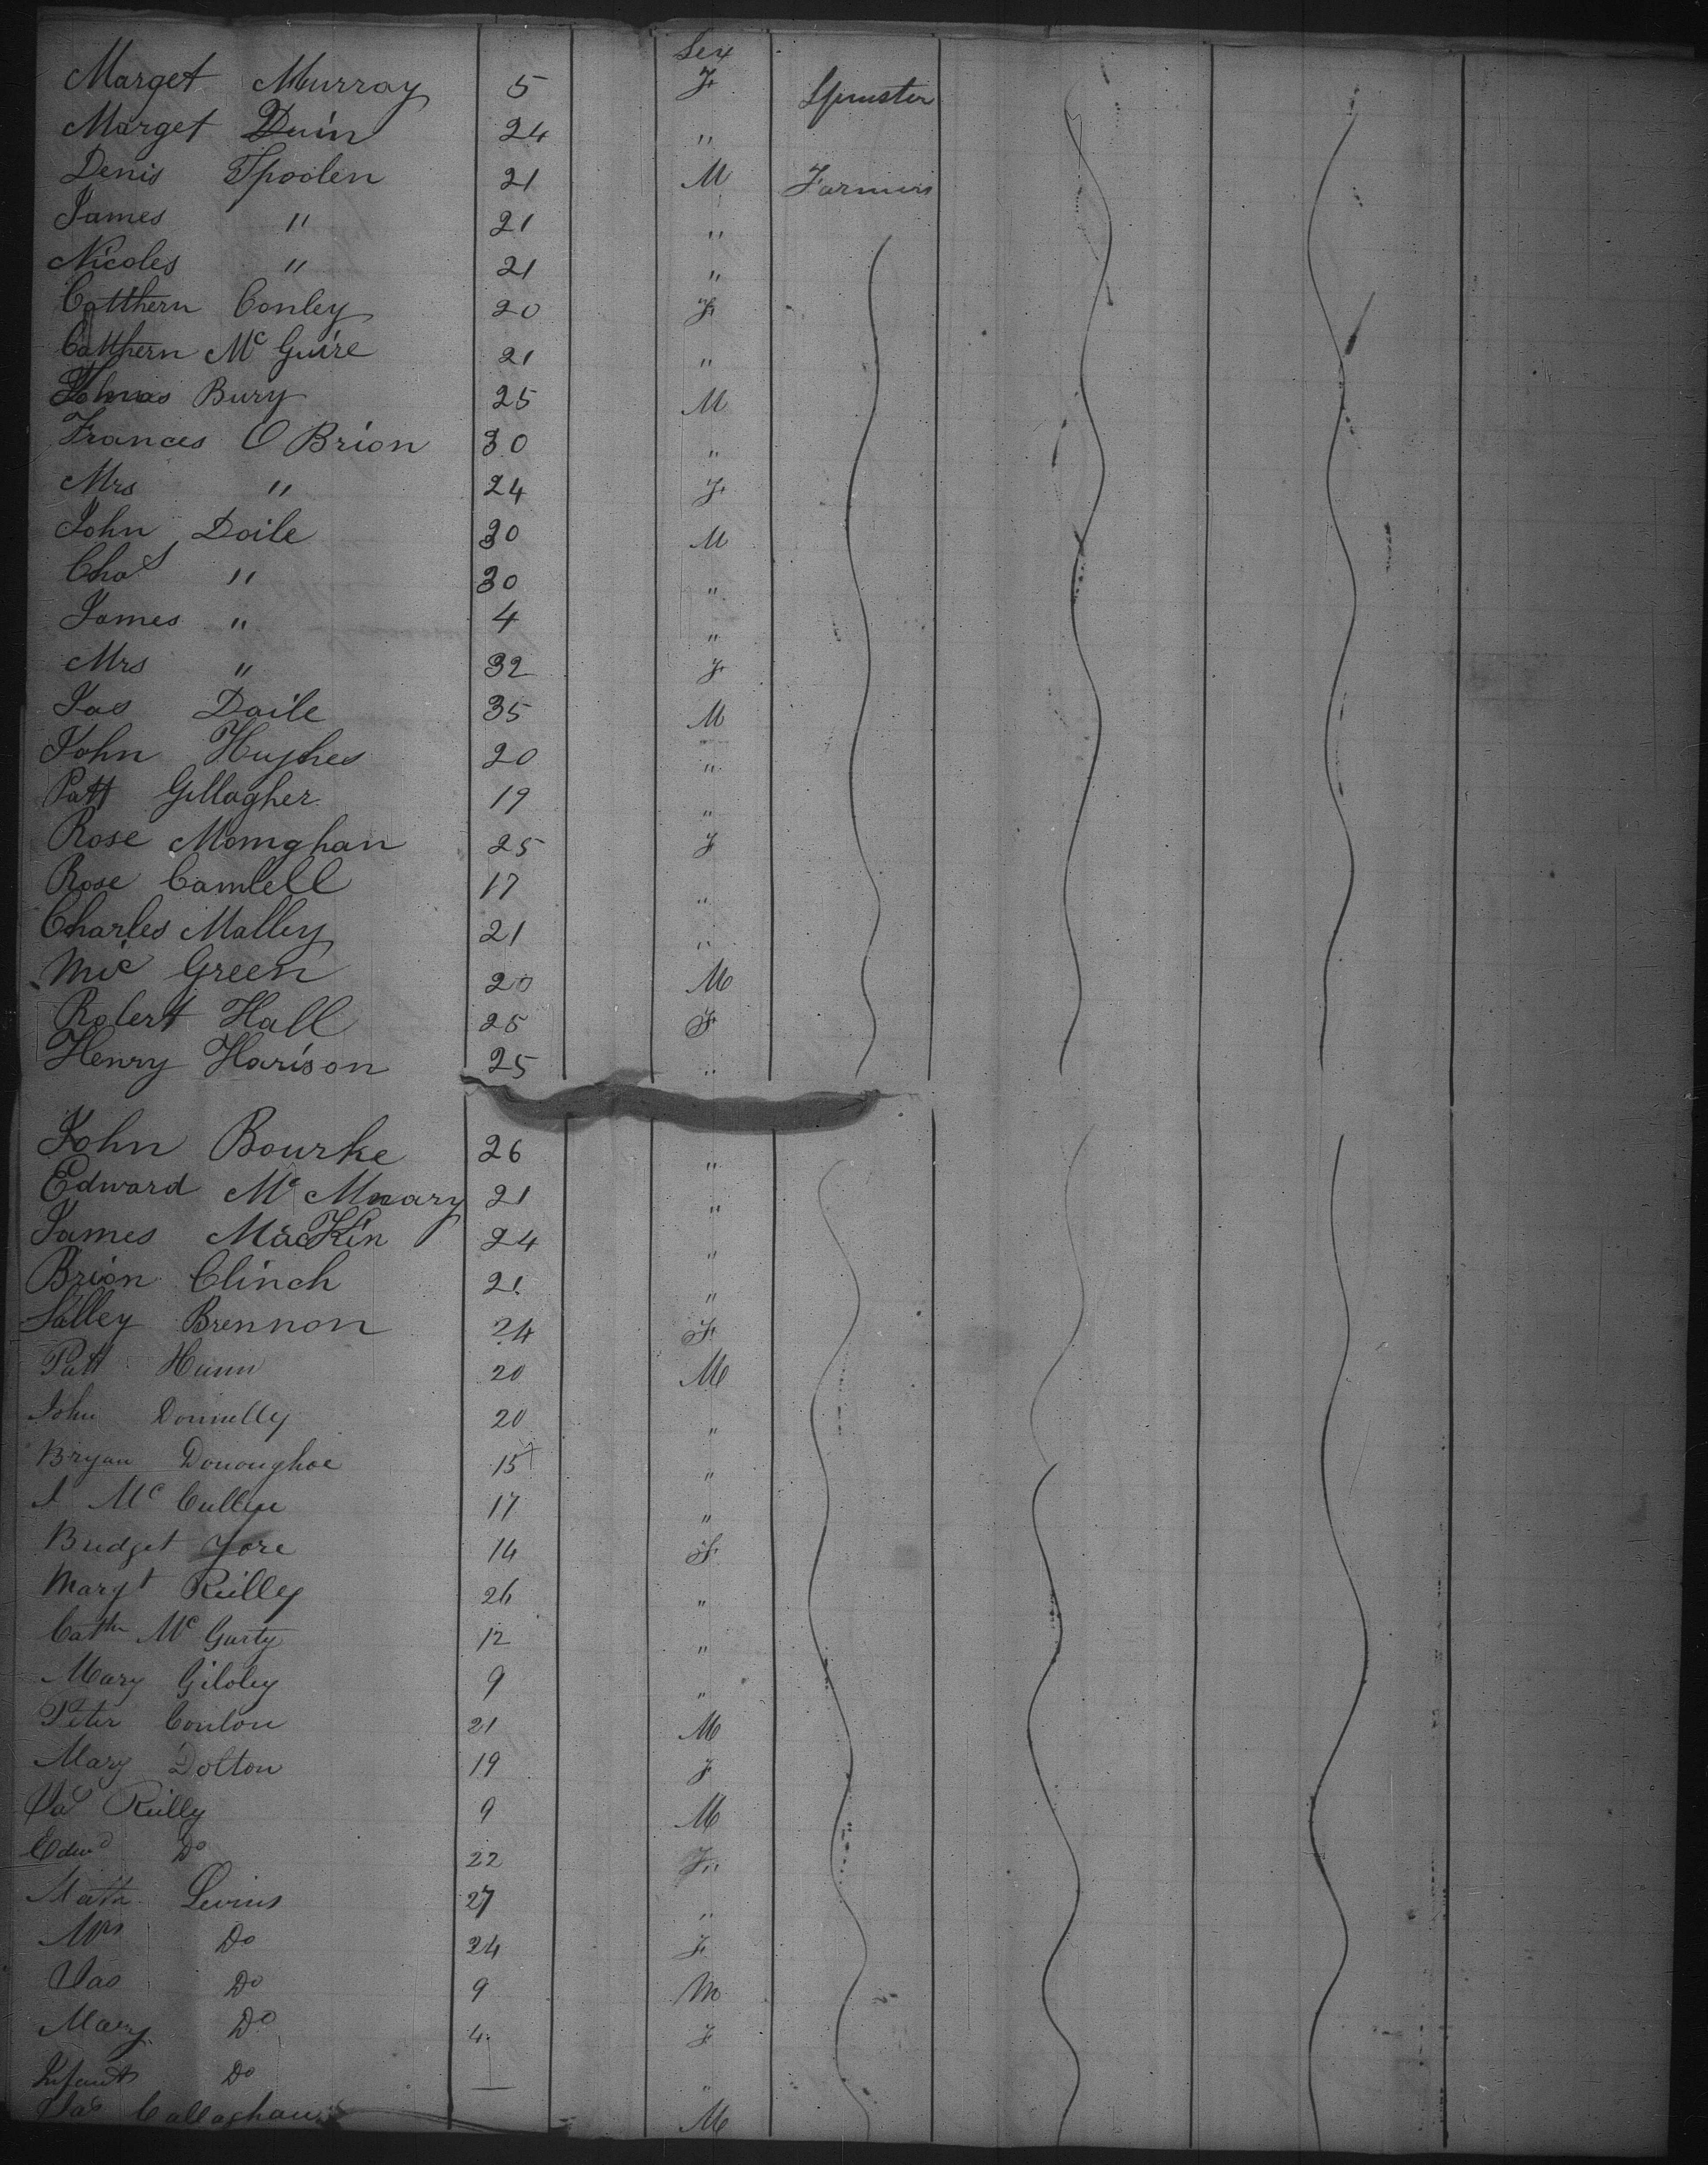 Sex
Marget Murray 5 F Spinster
Marget Duin 24 "
Denis Spoolen 21 M Farmers
James " 21 "
Nicoles " 21 "
Catthern Conley 20 F
Catthern Mc Guire 21 "
Thomas Bury 25 M
Frances O Brion 30 "
Mrs " 24 F
John Doile 30 M
Chas " 30 "
James " 4 "
Mrs " 32 F
Jas Doile 35 M
John Hughes 20 "
Patt Gillagher 19 "
Rose Momghan 25 F
Rose Camlell 17 "
Charles Malley 21 "
Mic Green 20 M
Robert Hall 25 F
Henry Harison 25 "
John Bourke 26 "
Edward Mc Mnary 21 "
James MacKin 24 "
Brion Clinch 21 "
Salley Brennon 24 F
Patt Hunn 20 M
John Donnelly 20 "
Bryan Donoughoe 15 "
J Mc Cullen 17 "
Bridget Yore 14 F
Margt Reilley 26 "
Cathn Mc Garty 12 "
Mary Giloley 9 "
Peter Conlon 21 M
Mary Dolton 19 F
Jas Reilly 9 M
Edwd Do 22 F "
Matth Levins 27 "
Mrs Do 24 F
Jas Do 9 M
Mary Do 4 F
Infant Do "
Jas Callaghan M